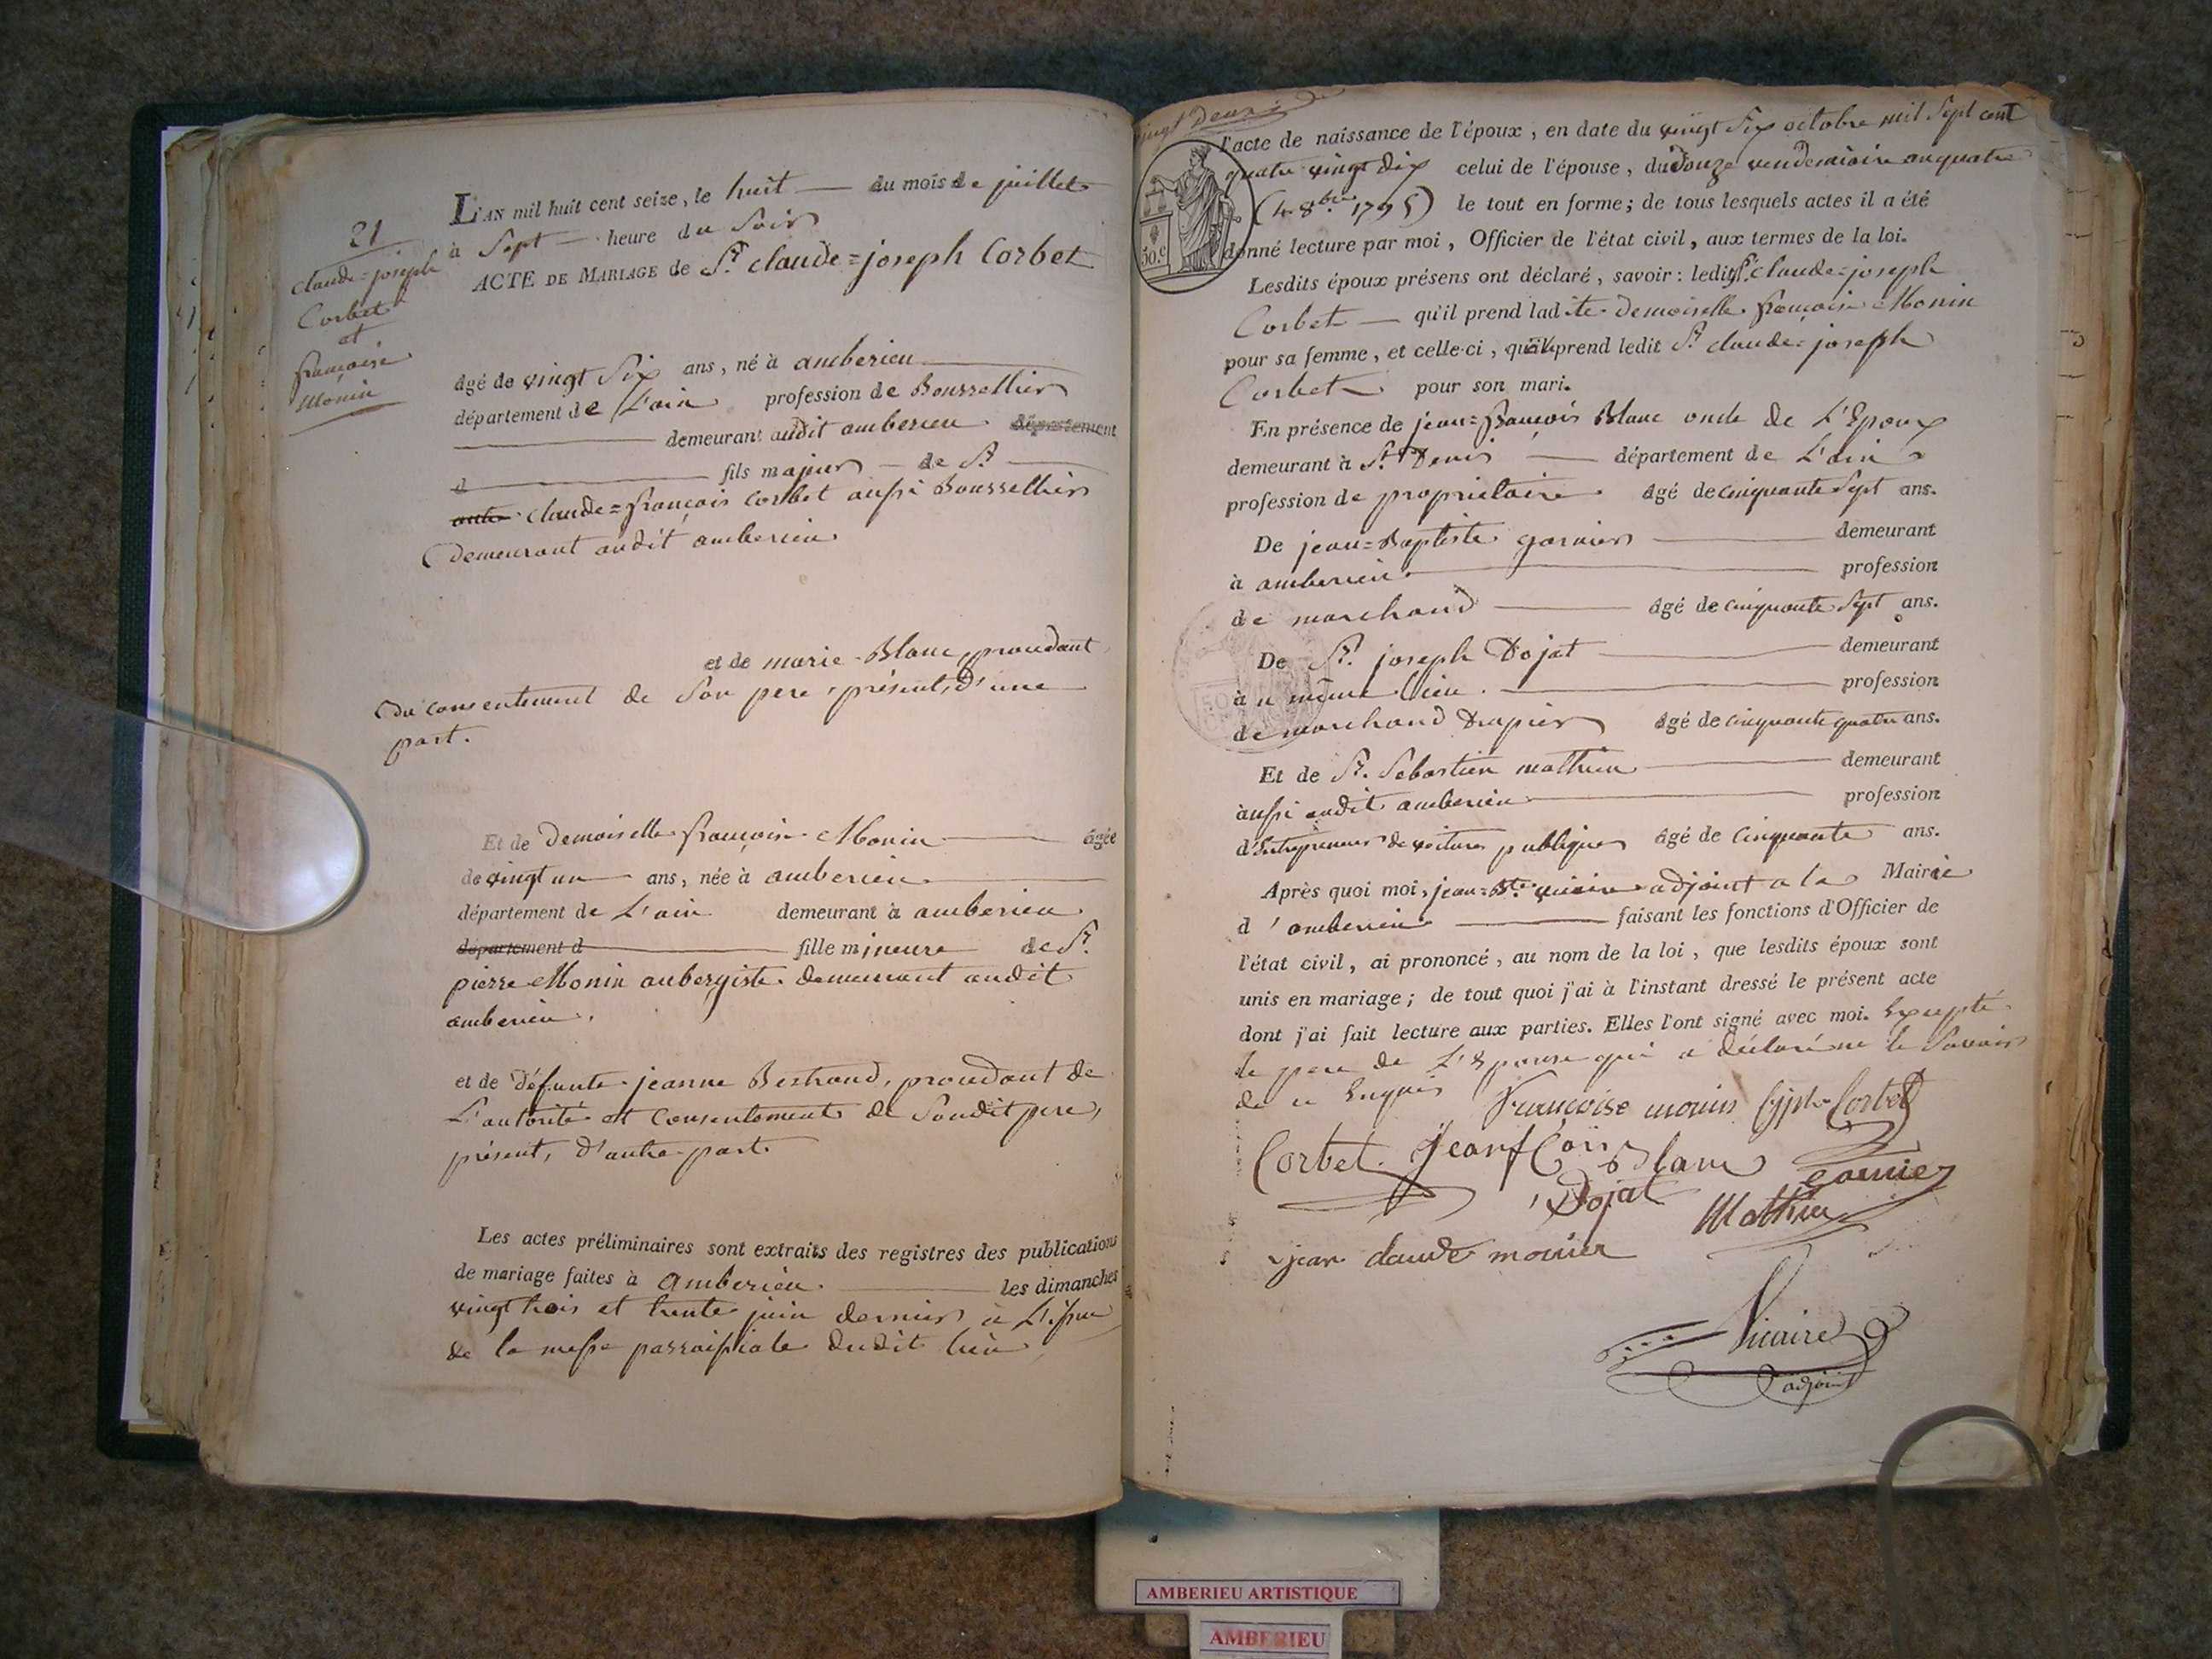 21
Claude=joseph
Corbet
et
françoise
Monin
L'AN mil huit cent seize, le huit du mois de juillet
à Sept heure du Soir
ACTE DE MARIAGE de Sr. claude=joseph Corbet
âgé de vingt Six ans, né à amberieu
département de L'ain profession de Bourrellier
demeurant audit amberieu département
d fils majeur de Sr.
autre claude=françois corbet aussi Bourrellier
Demeurant audit amberieu
et de marie Blanc, procedant
du consentement de Son pere, présent, d'une
part.
Et de Demoiselle françoise Monin âgée
de vingt un ans, née à amberieu
département de L'ain demeurant à amberieu
département d fille mineure de Sr.
pierre Monin aubergiste demeurant audit
amberieu.
et de défunte jeanne Bertrand, procedant de
L'autorité et Consentement de Sondit pere,
présent, d'autre part.
Les actes préliminaires sont extraits des registres des publications
de mariage faites à amberieu les dimanches
vingt trois et trente juin dernier à L'issue
de la messe parroissiale dudit lieu
vingt Deux
l'acte de naissance de l'époux, en date du vingt Six octobre mil Sept cent
quatre vingt dix celui de l'épouse, du douze vendemiaire an quatre
(4 8bre 1795) le tout en forme; de tous lesquels actes il a été
donné lecture par moi, Officier de l'état civil, aux termes de la loi.
Lesdits époux présens ont déclaré, savoir: ledit Sr. claude=joseph
Corbet qu'il prend ladite demoiselle françoise Monin
pour sa femme, et celle-ci, qu'elle prend ledit Sr. claude=joseph
Corbet pour son mari.
En présence de jean=françois Blanc oncle de L'Epoux
demeurant à St. Denis département de L'ain
profession de proprietaire âgé de cinquante Sept ans.
De jean=Baptiste garnier demeurant
à amberieu profession
de marchand âgé de cinquante Sept ans.
De Sr. joseph Dojat demeurant
au même lieu profession
de marchand Drapier âgé de cinquante quatre ans.
Et de Sr. Sebastien mathieu demeurant
aussi audit amberieu profession
d'Entrepreneur de voitures publiques âgé de Cinquante ans.
Après quoi moi, jean=Bte. vicaire adjoint a la Mairie
d'amberieu faisant les fonctions d'Officier de
l'état civil, ai prononcé, au nom de la loi, que lesdits époux sont
unis en mariage; de tout quoi j'ai à l'instant dressé le présent acte
dont j'ai fait lecture aux parties. Elles l'ont signé avec moi. Excepté
le pere de L'Epouse qui a déclaré ne le Savoir
de ce Enquis françoise monin Cjph Corbet
Corbet. jean fcois Blanc Garnier
Dojat Mathieu
jean claude monier
Vicaire
adjoint
50.C
50
AMBERIEU ARTISTIQUE
AMBERIEU